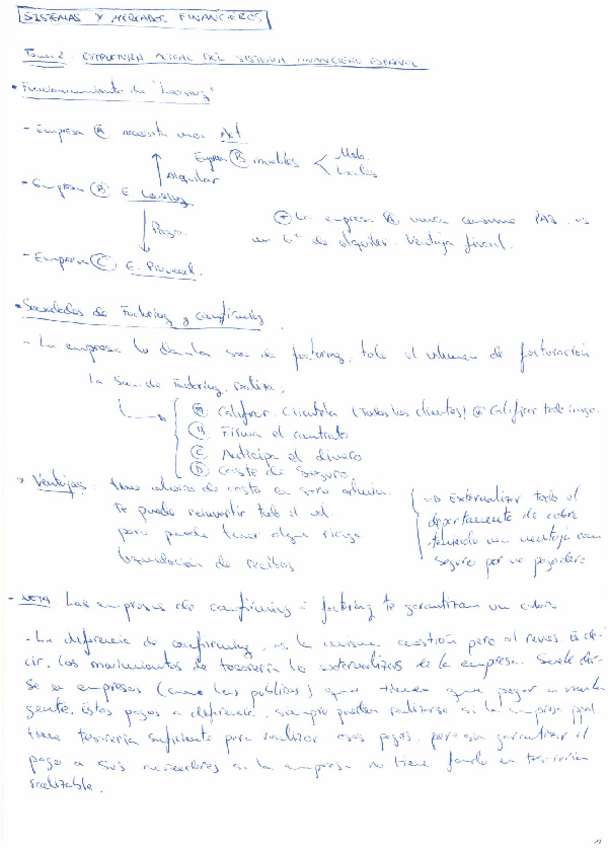 SISTEMAS Y MERCADOS FINANCIEROS
Tema 2: ESTRUCTURA ACTUAL DEL SISTEMA FINANCIERO ESPAÑOL.
• Funcionamiento de "Leasing"
- Empresa A necesita un Act
Empresa B muebles < Mob.
Alquilar
- Empresa B E. Leasing
Pago
+ La empresa no
un de alquiler. Ventaja fiscal.
- Empresa C E. Proveed.
• Sociedades de Factoring y confirming
- La empresa la de factoring, todo el volumen de facturación
La Soc. de Factoring, realiza:
A Calificar Clientela (Todos los clientes) Calificar todo riesgo.
B Firma el contrato
C Anticipa el dinero
D Coste de Seguro
Ventajas: de coste
Te puede reinvertir todo el
pero puede tener algún riesgo.
liquidación de recibos
Externalizar todo el
departamento de cobro
teniendo una ventaja con
seguro por no pagadero
- NOTA: Las empresas de confirming y factoring te garantizan un cobro
- La diferencia de confirming, es la misma cuestión pero al revés. Es de-
cir, los movimientos de tesorería lo externalizas de la empresa. Suele dir-
se a empresas (como las públicas) que tienen que pagar a mucha
gente. Estos pagos a diferencia, siempre pueden realizarse si la empresa ppal
tiene tesorería suficiente para realizar esos pagos, pero sin garantizar el
pago a sus acreedores si la empresa no tiene fondo en tesorería
realizable.